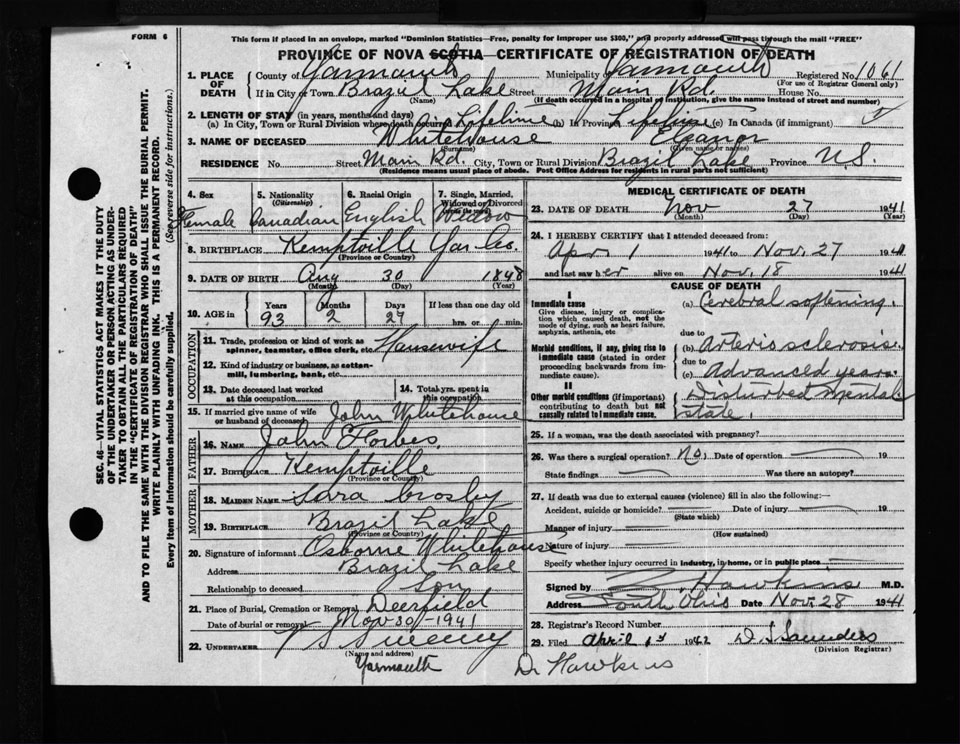 FORM 6
This form if placed in an envelope, marked "Dominion Statistics—Free, penalty for improper use $300," and properly addressed will pass through the mail "FREE"
PROVINCE OF NOVA SCOTIA—CERTIFICATE OF REGISTRATION OF DEATH
1. PLACE OF DEATH County of Yarmouth Municipality Yarmouth Registered No. 1061
(For use of Registrar General only)
If in City or Town Brazil Lake Street Main Rd. House No.
(Name) (If death occurred in a hospital or institution, give the name instead of street and number)
2. LENGTH OF STAY (in years, months and days)
(a) In City, Town or Rural Division where death occurred Lifetime (b) In Province Lifetime (c) In Canada (if immigrant)
3. NAME OF DECEASED Whitehouse Eleanor
(Surname) (Given name or names)
RESIDENCE No. Street Main Rd. City, Town or Rural Division Brazil Lake Province N.S.
(Residence means usual place of abode. Post Office Address for residents in rural parts not sufficient)
4. Sex Female
5. Nationality (Citizenship) Canadian
6. Racial Origin English
7. Single, Married, Widowed or Divorced Widow
8. BIRTHPLACE Kemptville Yar Co.
(Province or Country)
9. DATE OF BIRTH Aug 30 1848
(Month) (Day) (Year)
10. AGE in Years 93 Months 2 Days 27 If less than one day old hrs. or min.
OCCUPATION
11. Trade, profession or kind of work as spinner, teamster, office clerk, etc. Housewife
12. Kind of industry or business, as cotton-mill, lumbering, bank, etc.
13. Date deceased last worked at this occupation
14. Total yrs. spent in this occupation
15. If married give name of wife or husband of deceased John Whitehouse
FATHER
16. NAME John Forbes
17. BIRTHPLACE Kemptville
(Province or Country)
MOTHER
18. MAIDEN NAME Sara Crosby
19. BIRTHPLACE Brazil Lake
(Province or Country)
20. Signature of informant Osborne Whitehouse
Address Brazil Lake
Relationship to deceased Son
21. Place of Burial, Cremation or Removal Deerfield
Date of burial or removal Nov 30-1941
22. UNDERTAKER V S Sweeny
(Name and address)
Yarmouth
MEDICAL CERTIFICATE OF DEATH
23. DATE OF DEATH Nov 27 1941
(Month) (Day) (Year)
24. I HEREBY CERTIFY that I attended deceased from:
Apr 1 1941 to Nov. 27 1941
and last saw her alive on Nov. 18 1941
CAUSE OF DEATH
I
Immediate cause
Give disease, injury or complication which caused death, not the mode of dying, such as heart failure, asphyxia, asthenia, etc
(a) Cerebral softening.
due to
Morbid conditions, if any, giving rise to immediate cause (stated in order proceeding backwards from immediate cause).
(b) Arterio sclerosis.
due to
(c) Advanced years.
II
Other morbid conditions (if important) contributing to death but not causally related to immediate cause.
Disturbed mental state.
25. If a woman, was the death associated with pregnancy?
26. Was there a surgical operation? No. Date of operation 19
State findings Was there an autopsy?
27. If death was due to external causes (violence) fill in also the following:—
Accident, suicide or homicide? Date of injury 19
(State which)
Manner of injury
(How sustained)
Nature of injury
Specify whether injury occurred in industry, in home, or in public place
Signed by Hawkins M.D.
Address South Ohio Date Nov. 28 1941
28. Registrar's Record Number
29. Filed April 1942 D S Saunders
(Division Registrar)
Dr Hawkins
SEC. 46—VITAL STATISTICS ACT MAKES IT THE DUTY
OF THE UNDERTAKER OR PERSON ACTING AS UNDER-
TAKER TO OBTAIN ALL THE PARTICULARS REQUIRED
IN THE "CERTIFICATE OF REGISTRATION OF DEATH"
AND TO FILE THE SAME WITH THE DIVISION REGISTRAR WHO SHALL ISSUE THE BURIAL PERMIT.
WRITE PLAINLY WITH UNFADING INK. THIS IS A PERMANENT RECORD.
Every item of information should be carefully supplied. (See reverse side for instructions.)